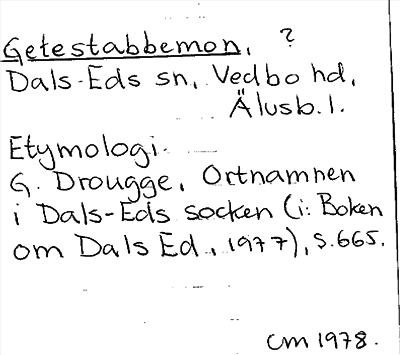 Getestabbemon, ?
Dals-Eds sn, Vedbo hd,
Älvsb. l.
Etymologi.
G. Drougge, Ortnamnen
i Dals-Eds socken (i: Boken
om Dals Ed, 1977), s. 665.
CM 1978.